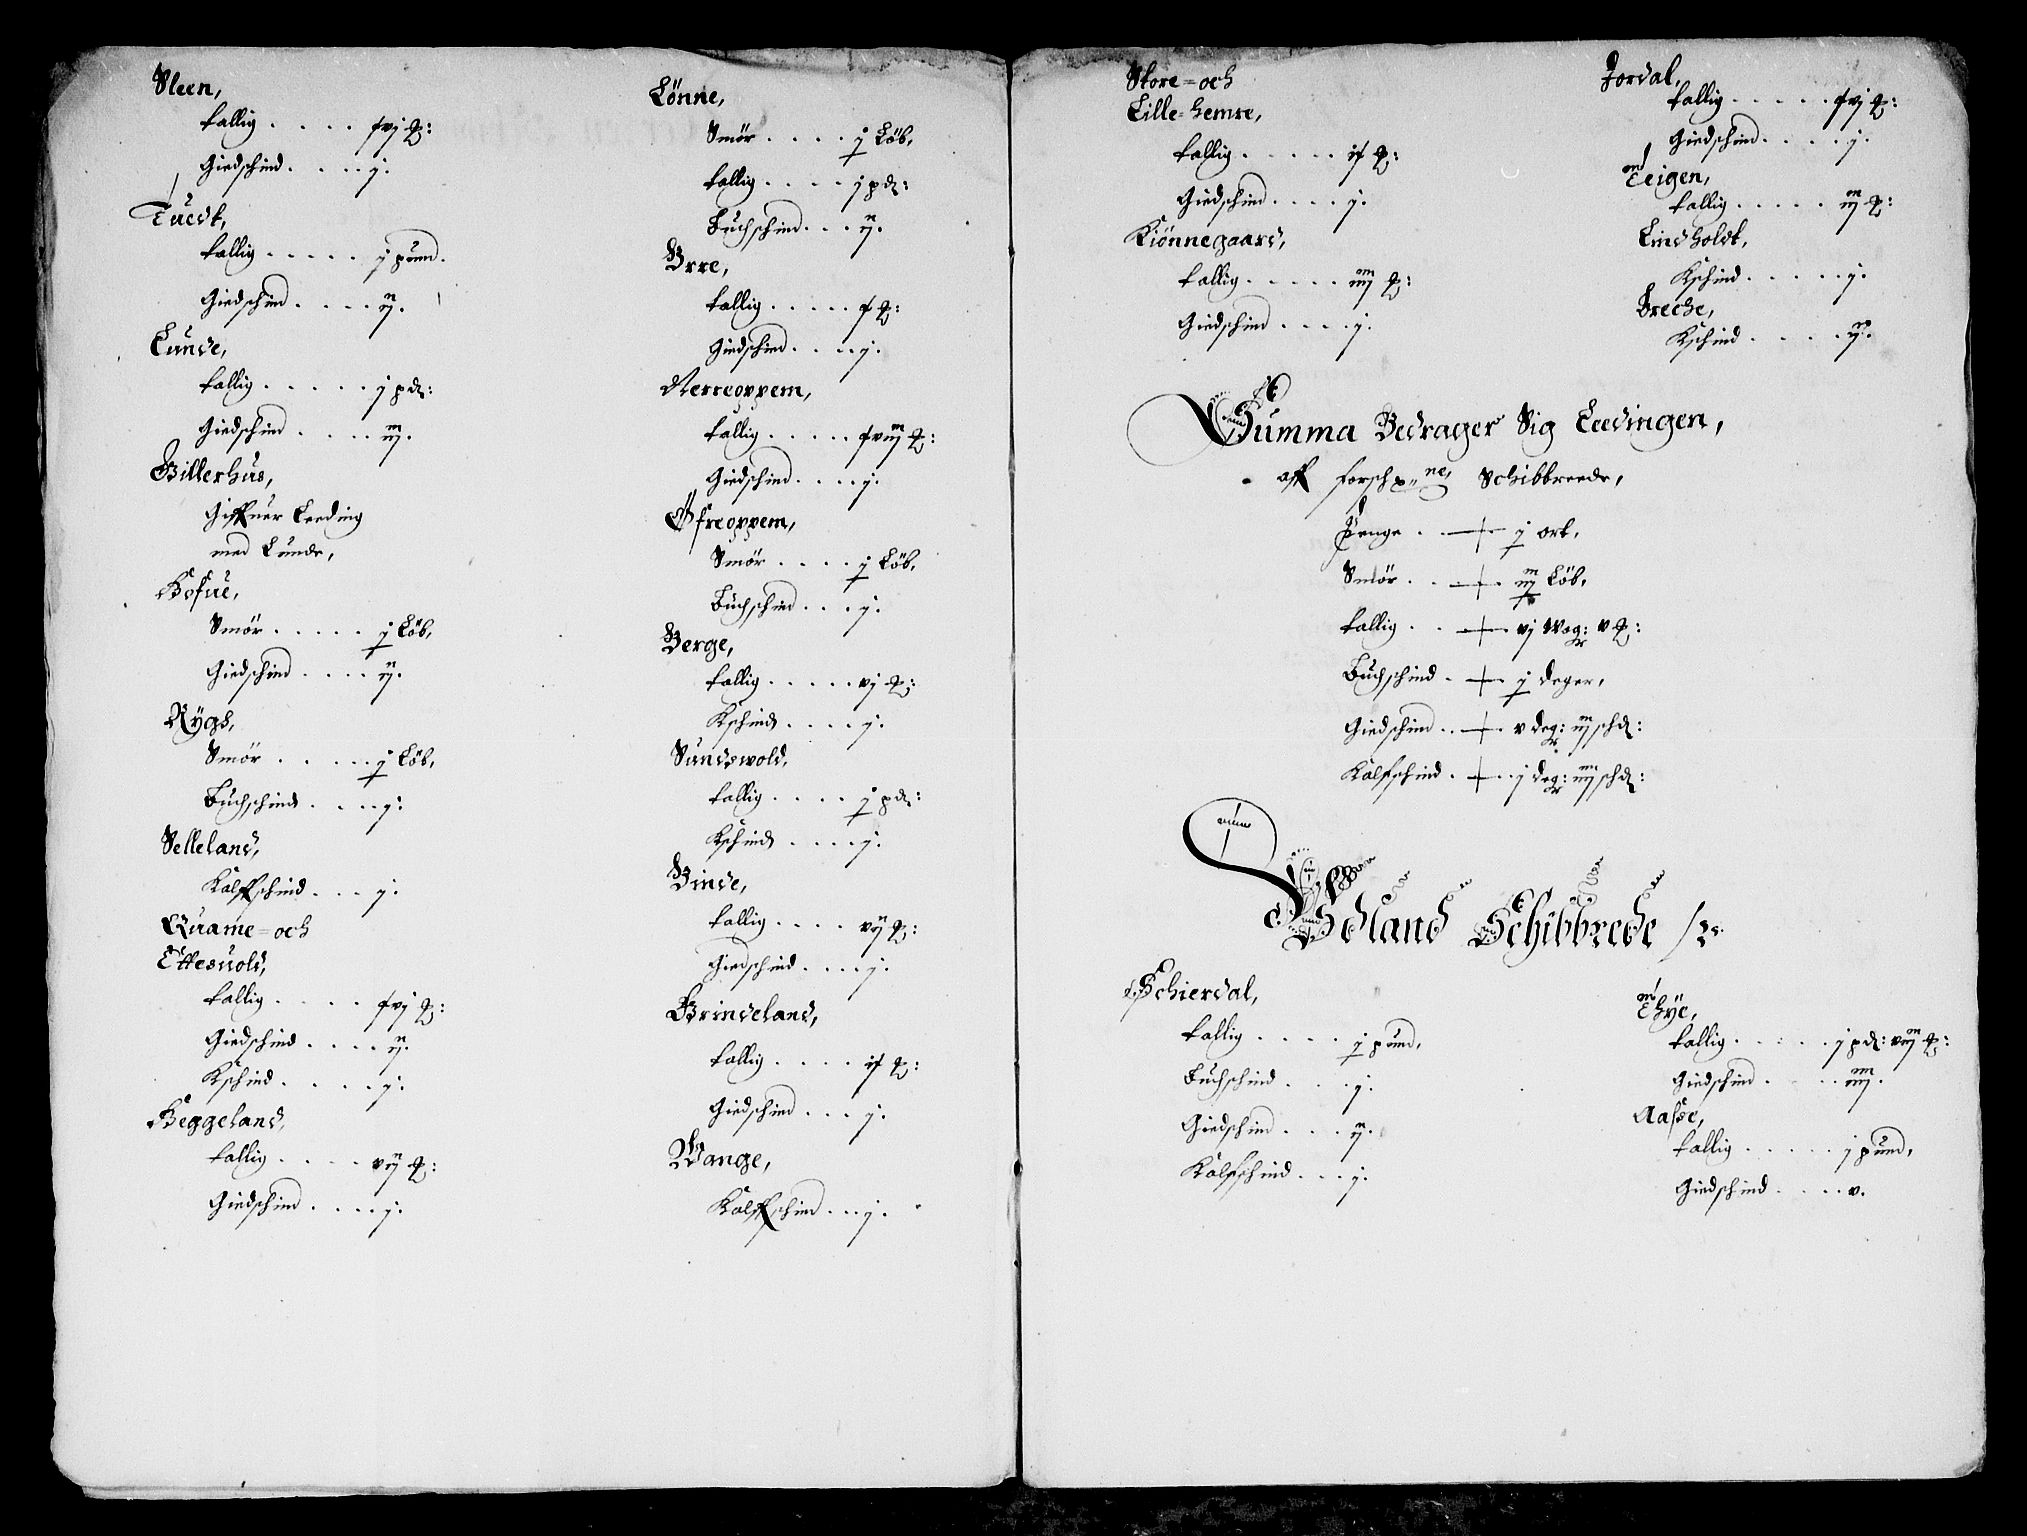 Steen,
tallig . . . . xvj ℔:
Giedschind . . . . j.
Tuedt,
tallig . . . . . j pund.
Giedschind . . . . ij.
Lunde,
tallig . . . . . j pd:
Giedschind . . . . iij.
Billerhus,
Giffuer Leeding
med Lunde,
Hofue,
Smör . . . . . j Löb,
Giedschind . . . . ij.
Rygs,
Smör . . . . . j Löb,
Buchschind . . . . j.
Selleland,
Kalffschind . . . j.
Quame=och
Ettesuold,
tallig . . . . xvj ℔:
Giedschind . . . . ij.
Kschind . . . . j.
Heggeland,
tallig . . . . vij ℔:
Giedschind . . . . j.
Lönne,
Smör . . . . j Löb,
tallig . . . . j pd:
Buchschind . . . ij.
Yrre,
tallig . . . . . x ℔:
Giedschind . . . . j.
Nerreoppem,
tallig . . . . . xviij ℔:
Giedschind . . . . j.
Öfreoppem,
Smör . . . . j Löb,
Buchschind . . . j.
Berge,
tallig . . . . . vj ℔:
Kschind . . . . j.
Sundswold,
tallig . . . . j pd:
Kschind . . . . j.
Binde,
tallig . . . . vij ℔:
Giedschind . . . . j.
Grindeland,
tallig . . . . ix ℔:
Giedschind . . . j.
Wange,
Kalffschind . . . j.
Store=och
Lille=hemre,
tallig . . . . . ix ℔:
Giedschind . . . . j.
Kiönnegaard,
tallig . . . . . iiij ℔:
Giedschind . . . . j.
Jordal,
tallig . . . . . xvj ℔:
Giedschind . . . . j.
Teigen,
tallig . . . . . iij ℔:
Lindholdt,
Kschind . . . . . j.
Breche,
Kschind . . . . ij.
Summa Bedrager Sig Leedingen,
aff forschne, Schibbreede,
Penge . . . j ort,
Smör . . . iij Löb,
tallig . . . vj Wog: v ℔:
Buchschind . . j deger,
Giedschind . . . v deg: iij schd:
Kalfschind . . . j deg: iiij schd:
Ådland Schibbrede
Schierdal,
tallig . . . . j pund,
Buchschind . . . j.
Giedschind . . . ij.
Kalfschind . . . j.
Thye,
tallig . . . . . j pd: viij ℔:
Giedschind . . . . iiij.
Aasse,
tallig . . . . . j pund,
Giedschind . . . . v.